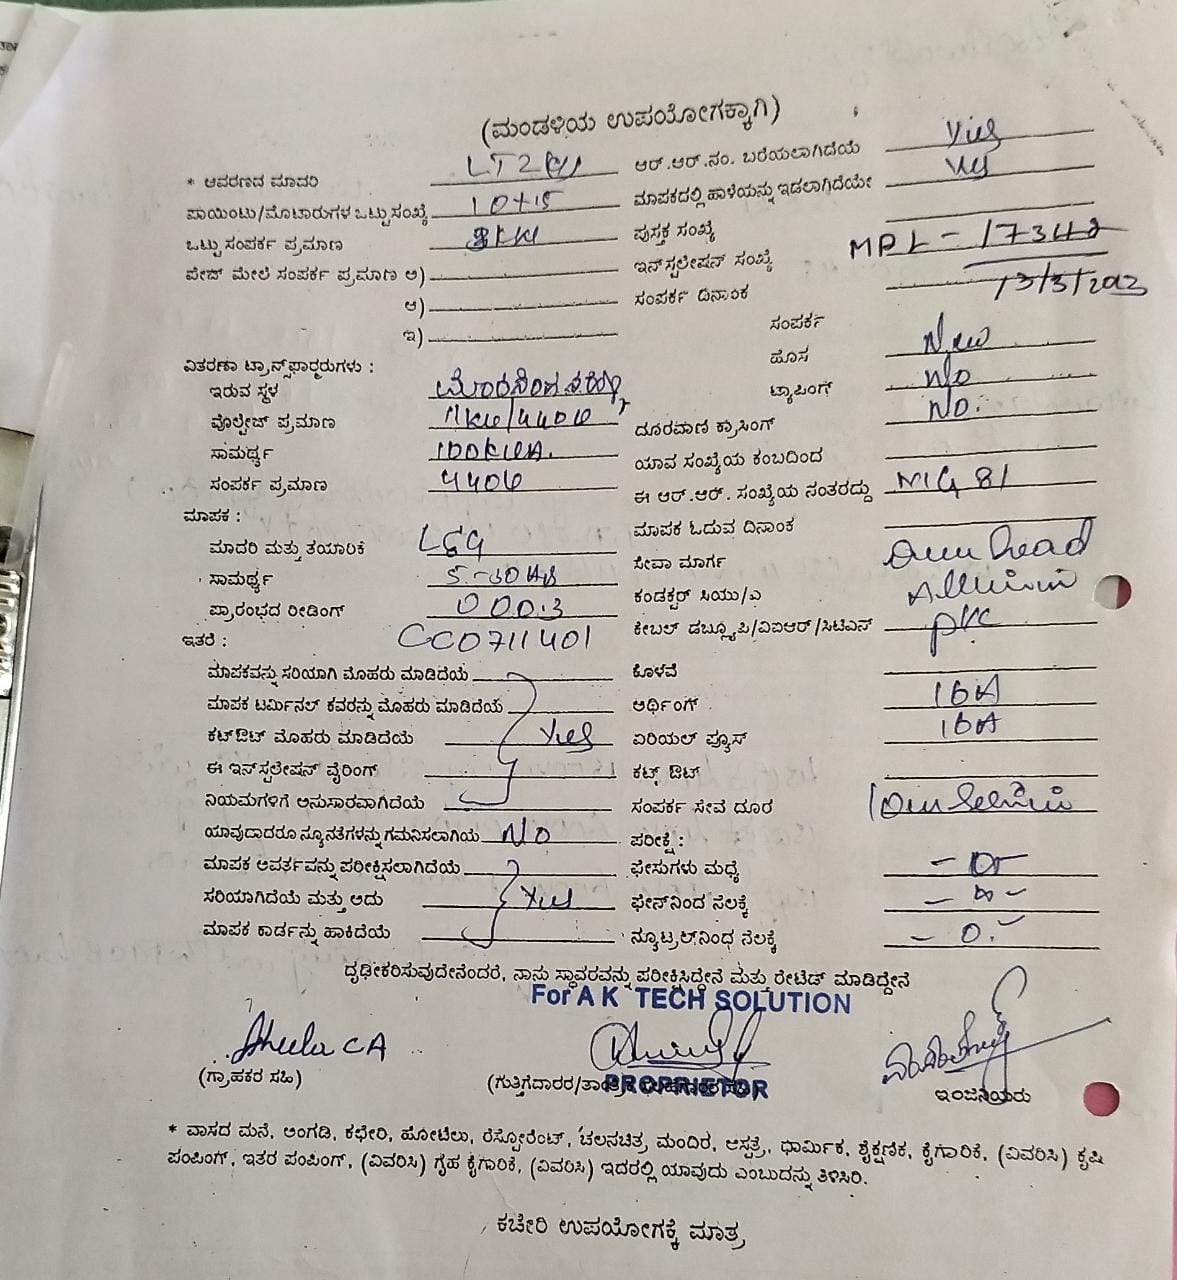 (ಮಂಡಳಿಯ ಉಪಯೋಗಕ್ಕಾಗಿ)
* ಆವರಣದ ಮಾದರಿ LT2 ಆರ್.ಆರ್.ನಂ. ಬರೆಯಲಾಗಿದೆಯೆ Yes
ಪಾಯಿಂಟು/ಮೋಟಾರುಗಳ ಒಟ್ಟು ಸಂಖ್ಯೆ 10+15 ಮಾಪಕದಲ್ಲಿ ಹಾಳೆಯನ್ನು ಇಡಲಾಗಿದೆಯೇ Yes
ಒಟ್ಟು ಸಂಪರ್ಕ ಪ್ರಮಾಣ ಪುಸ್ತಕ ಸಂಖ್ಯೆ
ಪೇಜ್ ಮೇಲೆ ಸಂಪರ್ಕ ಪ್ರಮಾಣ ಅ) ಇನ್‌ಸ್ಟಲೇಷನ್ ಸಂಖ್ಯೆ MPL - 17342
ಆ) ಸಂಪರ್ಕ ದಿನಾಂಕ 13/3/2023
ಇ) ಸಂಪರ್ಕ
ವಿತರಣಾ ಟ್ರಾನ್ಸ್‌ಫಾರ್ಮರುಗಳು : ಹೊಸ New
ಇರುವ ಸ್ಥಳ ಟ್ಯಾಪಿಂಗ್ No
ವೊಲ್ಟೇಜ್ ಪ್ರಮಾಣ 11KV/440V ದೂರವಾಣಿ ಕ್ರಾಸಿಂಗ್ No.
ಸಾಮರ್ಥ್ಯ 100KVA. ಯಾವ ಸಂಖ್ಯೆಯ ಕಂಬದಿಂದ
ಸಂಪರ್ಕ ಪ್ರಮಾಣ 440V ಈ ಆರ್.ಆರ್. ಸಂಖ್ಯೆಯ ನಂತರದ್ದು MG 81
ಮಾಪಕ : ಮಾಪಕ ಓದುವ ದಿನಾಂಕ
ಮಾದರಿ ಮತ್ತು ತಯಾರಿಕೆ L&G ಸೇವಾ ಮಾರ್ಗ Over head
ಸಾಮರ್ಥ್ಯ 5-30 ಕಂಡಕ್ಟರ್ ಸಿಯು/ಎ
ಪ್ರಾರಂಭದ ರೀಡಿಂಗ್ 000.3 ಕೇಬಲ್ ಡಬ್ಲ್ಯೂಪಿ/ವಿಐಆರ್/ಸಿಟಿಎಸ್ pvc
ಇತರೆ : CC0711401
ಮಾಪಕವನ್ನು ಸರಿಯಾಗಿ ಮೊಹರು ಮಾಡಿದೆಯೆ ಕೊಳವೆ
ಮಾಪಕ ಟರ್ಮಿನಲ್ ಕವರನ್ನು ಮೊಹರು ಮಾಡಿದೆಯೆ ಅರ್ಥಿಂಗ್ 16A
ಕಟ್‌ಔಟ್ ಮೊಹರು ಮಾಡಿದೆಯೆ Yes ಏರಿಯಲ್ ಫ್ಯೂಸ್ 16A
ಈ ಇನ್‌ಸ್ಟಲೇಷನ್ ವೈರಿಂಗ್ ಕಟ್ಔಟ್
ನಿಯಮಗಳಿಗೆ ಅನುಸಾರವಾಗಿದೆಯೆ ಸಂಪರ್ಕ ಸೇವೆ ದೂರ
ಯಾವುದಾದರೂ ನ್ಯೂನತೆಗಳನ್ನು ಗಮನಿಸಲಾಗಿಯೆ NO ಪರೀಕ್ಷೆ :
ಮಾಪಕ ಆವರ್ತವನ್ನು ಪರೀಕ್ಷಿಸಲಾಗಿದೆಯೆ ಫೇಸುಗಳು ಮಧ್ಯೆ - 0 -
ಸರಿಯಾಗಿದೆಯೆ ಮತ್ತು ಅದು Yes ಫೇಸ್‌ನಿಂದ ನೆಲಕ್ಕೆ - 0 -
ಮಾಪಕ ಕಾರ್ಡನ್ನು ಹಾಕಿದೆಯೆ ನ್ಯೂಟ್ರಲ್‌ನಿಂಧ ನೆಲಕ್ಕೆ - 0. -
ದೃಢೀಕರಿಸುವುದೇನೆಂದರೆ, ನಾನು ಸ್ಥಾವರವನ್ನು ಪರೀಕ್ಷಿಸಿದ್ದೇನೆ ಮತ್ತು ರೇಟೆಡ್ ಮಾಡಿದ್ದೇನೆ
For A K TECH SOLUTION
Sheela C A
(ಗ್ರಾಹಕರ ಸಹಿ) (ಗುತ್ತಿಗೆದಾರರ/ PROPRIETOR ಇಂಜಿನಿಯರು
* ವಾಸದ ಮನೆ, ಅಂಗಡಿ, ಕಛೇರಿ, ಹೋಟೆಲು, ರೆಸ್ಟೋರೆಂಟ್, ಚಲನಚಿತ್ರ, ಮಂದಿರ, ಆಸ್ಪತ್ರೆ, ಧಾರ್ಮಿಕ, ಶೈಕ್ಷಣಿಕ, ಕೈಗಾರಿಕೆ, (ವಿವರಿಸಿ) ಕೃಷಿ
ಪಂಪಿಂಗ್, ಇತರ ಪಂಪಿಂಗ್, (ವಿವರಿಸಿ) ಗೃಹ ಕೈಗಾರಿಕೆ, (ವಿವರಿಸಿ) ಇದರಲ್ಲಿ ಯಾವುದು ಎಂಬುದನ್ನು ತಿಳಿಸಿರಿ.
ಕಚೇರಿ ಉಪಯೋಗಕ್ಕೆ ಮಾತ್ರ